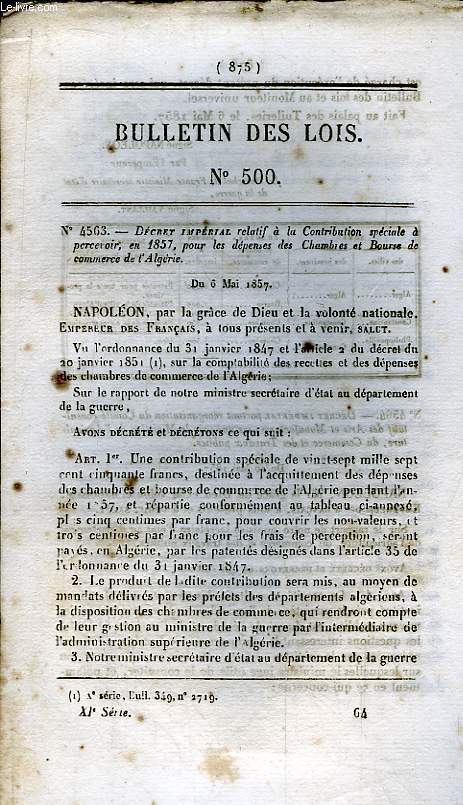 Le-livre.com
( 875 )
BULLETIN DES LOIS.
N° 500.
N° 4563. — DÉCRET IMPÉRIAL relatif à la Contribution spéciale à
percevoir, en 1857, pour les dépenses des Chambres et Bourse de
commerce de l'Algérie.
Du 6 Mai 1857.
NAPOLÉON, par la grâce de Dieu et la volonté nationale,
EMPEREUR DES FRANÇAIS, à tous présents et à venir, SALUT.
Vu l'ordonnance du 31 janvier 1847 et l'article 2 du décret du
20 janvier 1851 (1), sur la comptabilité des recettes et des dépenses
des chambres de commerce de l'Algérie;
Sur le rapport de notre ministre secrétaire d'état au département
de la guerre,
AVONS DÉCRÉTÉ et DÉCRÉTONS ce qui suit :
ART. 1er. Une contribution spéciale de vingt-sept mille sept
cent cinquante francs, destinée à l'acquittement des dépenses
des chambres et bourse de commerce de l'Algérie pendant l'an-
née 1857, et répartie conformément au tableau ci-annexé,
plus cinq centimes par franc, pour couvrir les non-valeurs, et
trois centimes par franc pour les frais de perception, seront
payés, en Algérie, par les patentés désignés dans l'article 35 de
l'ordonnance du 31 janvier 1847.
2. Le produit de ladite contribution sera mis, au moyen de
mandats délivrés par les préfets des départements algériens, à
la disposition des chambres de commerce, qui rendront compte
de leur gestion au ministre de la guerre par l'intermédiaire de
l'administration supérieure de l'Algérie.
3. Notre ministre secrétaire d'état au département de la guerre
(1) Xe série, Bull. 349, n° 2719.
XIe Série. 64